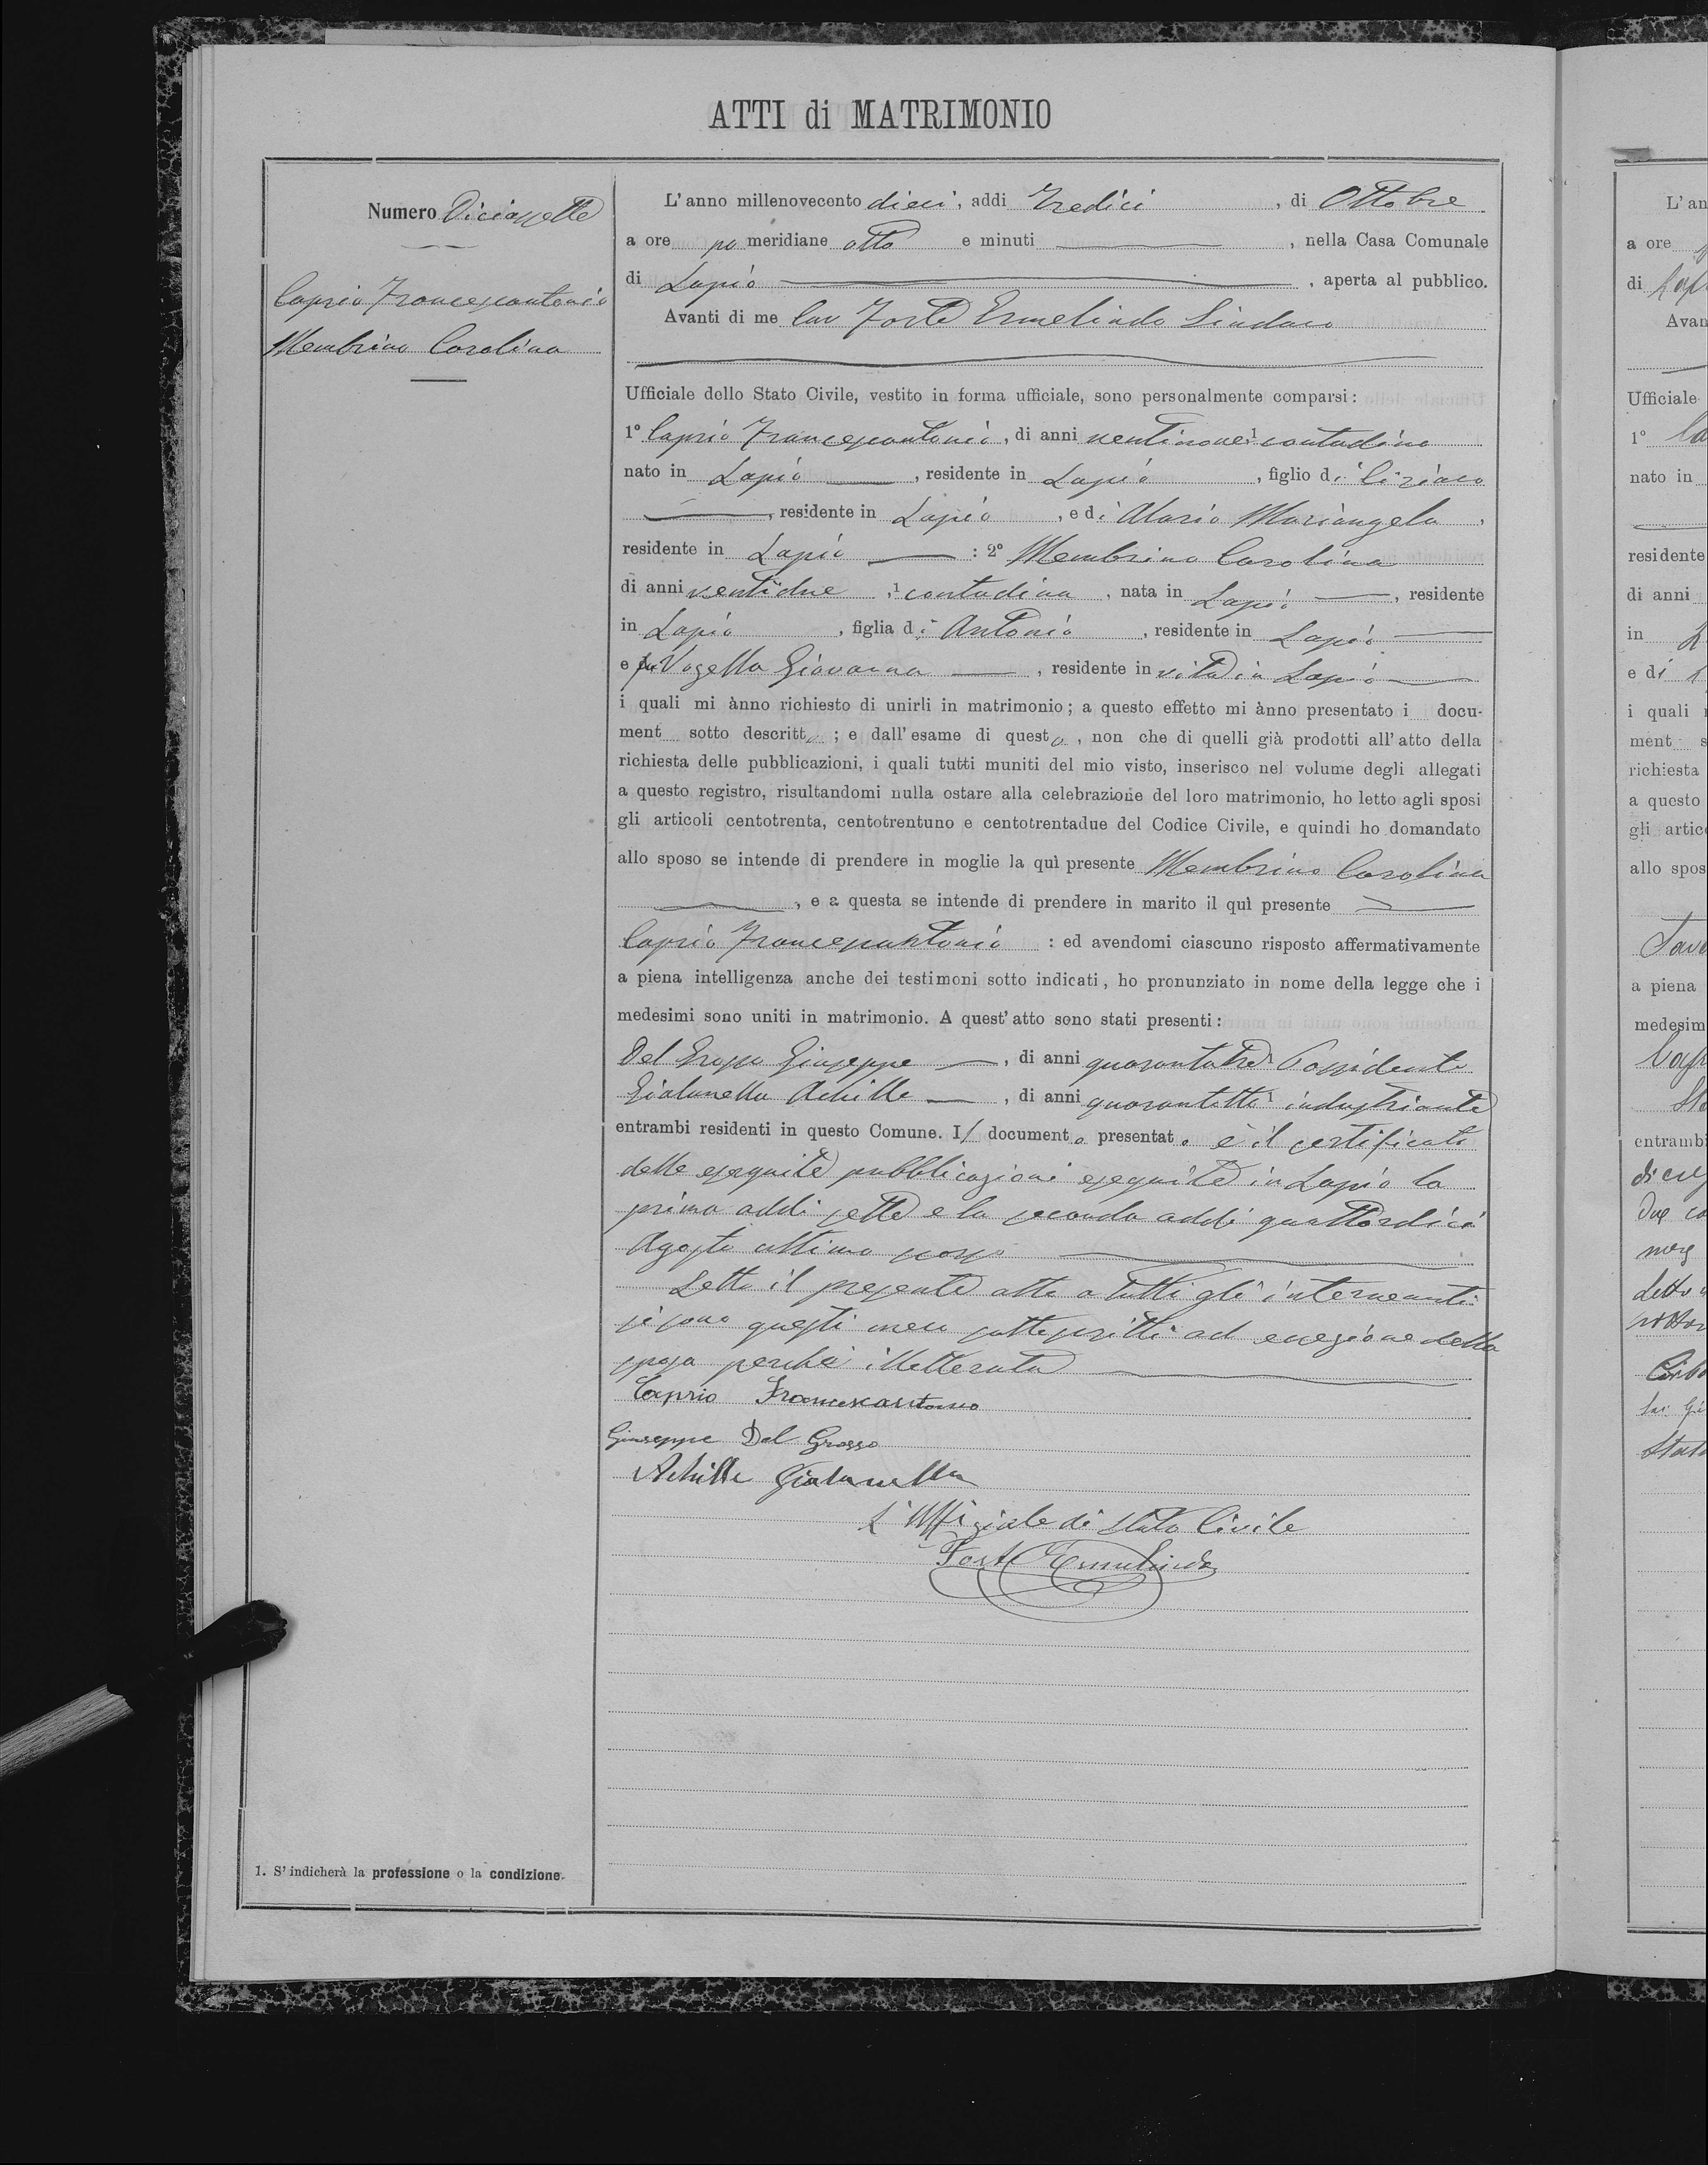 ATTI di MATRIMONIO
Numero Diciassette
Caprio Francescantonio
Membrino Carolina
L'anno millenovecento dieci, addi Tredici, di Ottobre
a ore po meridiane otto e minuti, nella Casa Comunale
di Lapio, aperta al pubblico.
Avanti di me Cav Forte Ermelindo Sindaco
Ufficiale dello Stato Civile, vestito in forma ufficiale, sono personalmente comparsi:
1° Caprio Francescantonio, di anni ventinove, 1 contadino
nato in Lapio, residente in Lapio, figlio di Ciriaco
, residente in Lapio, e di Alario Mariangela,
residente in Lapio: 2° Membrino Carolina
di anni ventidue, 1 contadina, nata in Lapio, residente
in Lapio, figlia di Antonio, residente in Lapio
e fu Vozella Giovanna, residente in vita in Lapio
i quali mi ànno richiesto di unirli in matrimonio; a questo effetto mi ànno presentato i docu-
ment sotto descritto; e dall'esame di questo, non che di quelli già prodotti all'atto della
richiesta delle pubblicazioni, i quali tutti muniti del mio visto, inserisco nel volume degli allegati
a questo registro, risultandomi nulla ostare alla celebrazione del loro matrimonio, ho letto agli sposi
gli articoli centotrenta, centotrentuno e centotrentadue del Codice Civile, e quindi ho domandato
allo sposo se intende di prendere in moglie la quì presente Membrino Carolina
, e a questa se intende di prendere in marito il quì presente
Caprio Francescantonio: ed avendomi ciascuno risposto affermativamente
a piena intelligenza anche dei testimoni sotto indicati, ho pronunziato in nome della legge che i
medesimi sono uniti in matrimonio. A quest'atto sono stati presenti:
Del Grosso Giuseppe, di anni quarantatre 1 Possidente
Gialanella Achille, di anni quarantotto 1 industriante
entrambi residenti in questo Comune. Il documento presentato è il certificato
delle eseguite pubblicazioni eseguite in Lapio la
prima addi sette e la seconda addi quattordici
Agosto ultimo scorso
Letto il presente atto a tutti gli intervenuti
si sono questi meco sottoscritti ad eccezione della
sposa perchè illetterata
Caprio Francescantonio
Giuseppe Del Grosso
Achille Gialanella
L'Uffiziale di Stato Civile
Forte Ermelindo
1. S'indicherà la professione o la condizione.
L'an
a ore
di Lapi
Avan
Ufficiale
1° Ca
nato in
residente
di anni
in L
e di
i quali
ment s
richiesta
a questo
gli artic
allo spos
a piena
medesim
entrambi